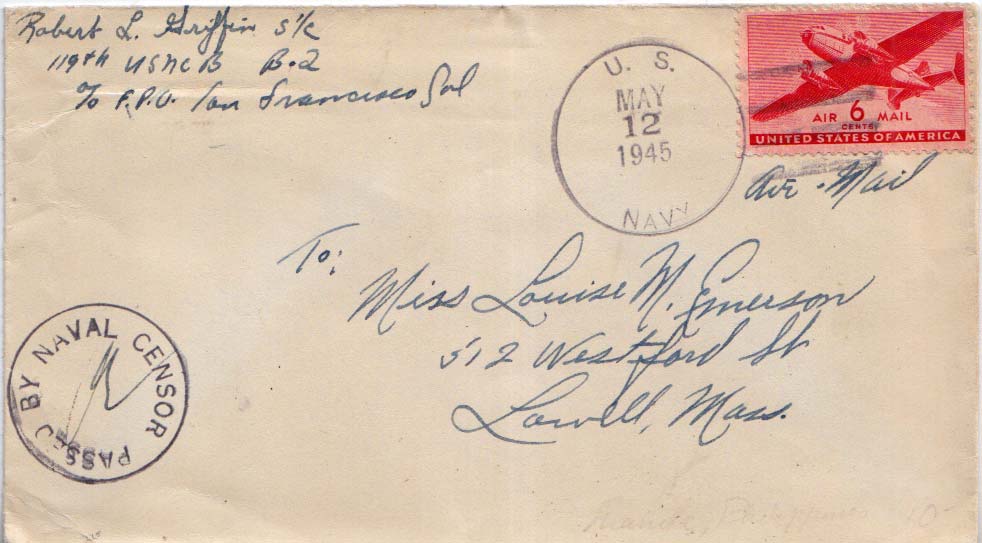 Robert L. Griffin S 1/c
119th USNCB B-2
c/o F.P.O. San Francisco Cal
U. S.
MAY
12
1945
NAVY
AIR 6 MAIL
CENTS
UNITED STATES OF AMERICA
Air-Mail
To:
Miss Louise M. Emerson
512 Westford St
Lowell, Mass.
PASSED BY NAVAL CENSOR
Manila, Philippines